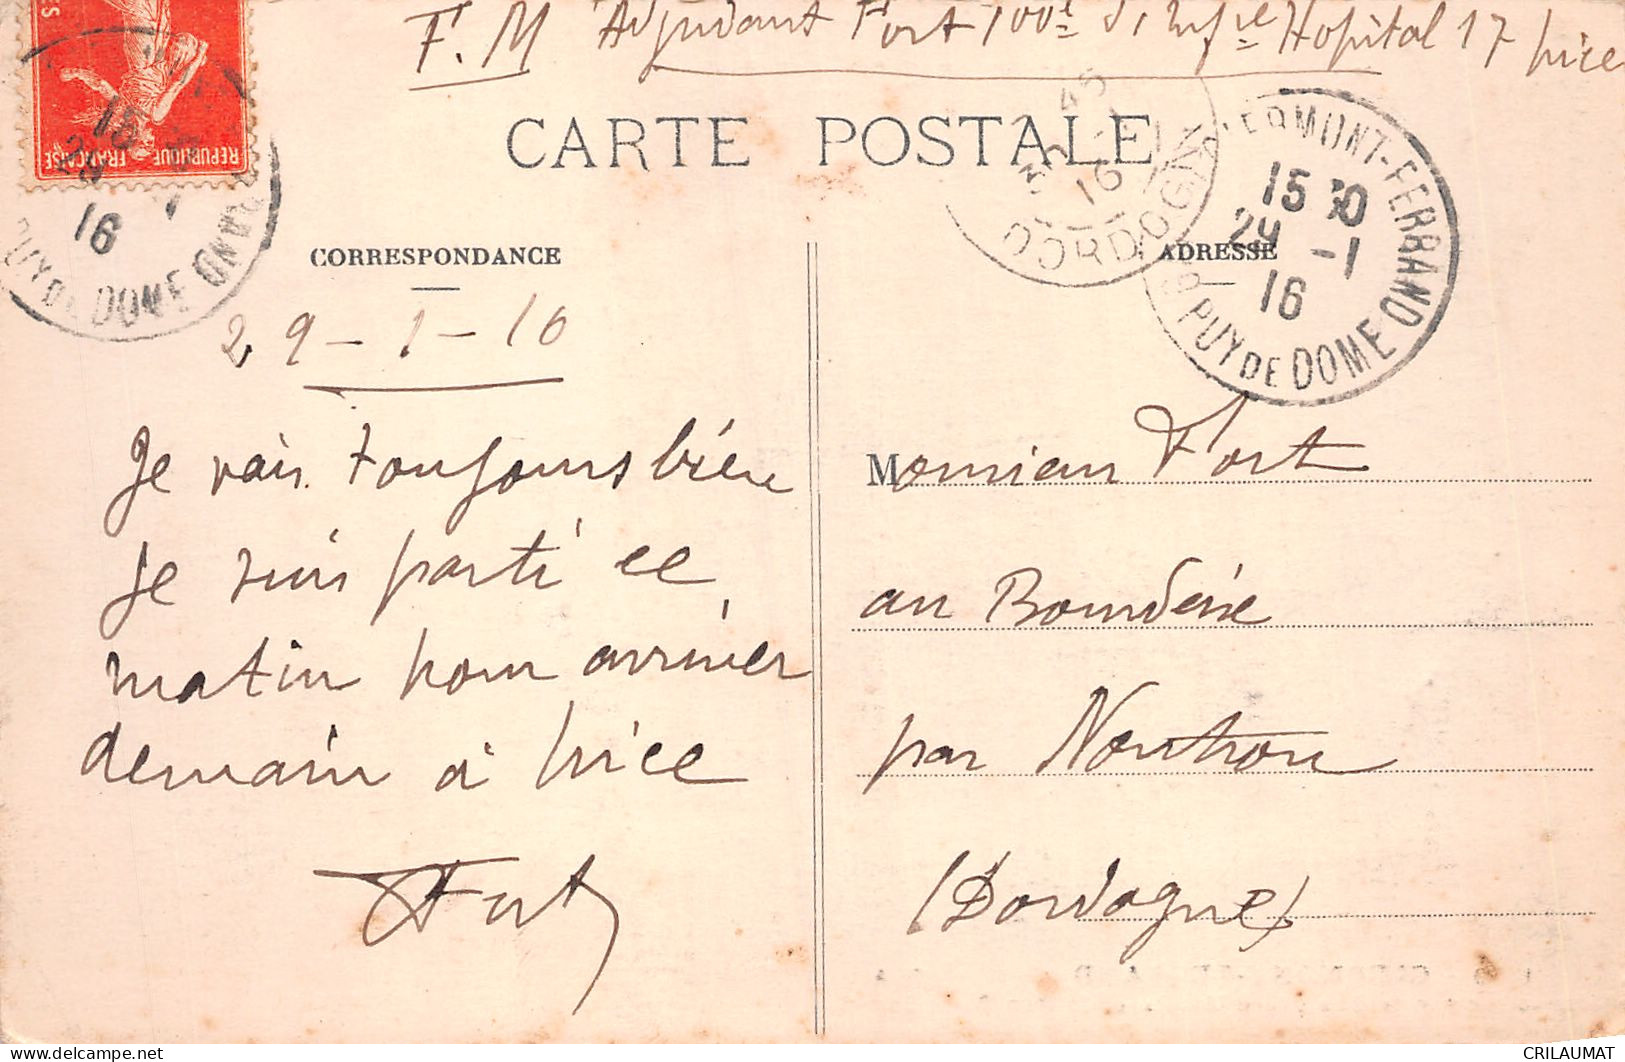 F. M Adjudant Fort 100e d'Infie Hopital 17 Nice
CARTE POSTALE
REPUBLIQUE FRANCAISE
15
29
16
PUY DE DOME
45
30
16
DORDOGNE
CLERMONT-FERRAND
15 30
29 -1
16
PUY DE DOME
CORRESPONDANCE
29-1-16
Je vais toujours bien
je suis parti ce
matin pour arriver
demain à Nice
Fort
ADRESSE
Monsieur Fort
au Bourdeix
par Nontron
(Dordogne)
CRILAUMAT